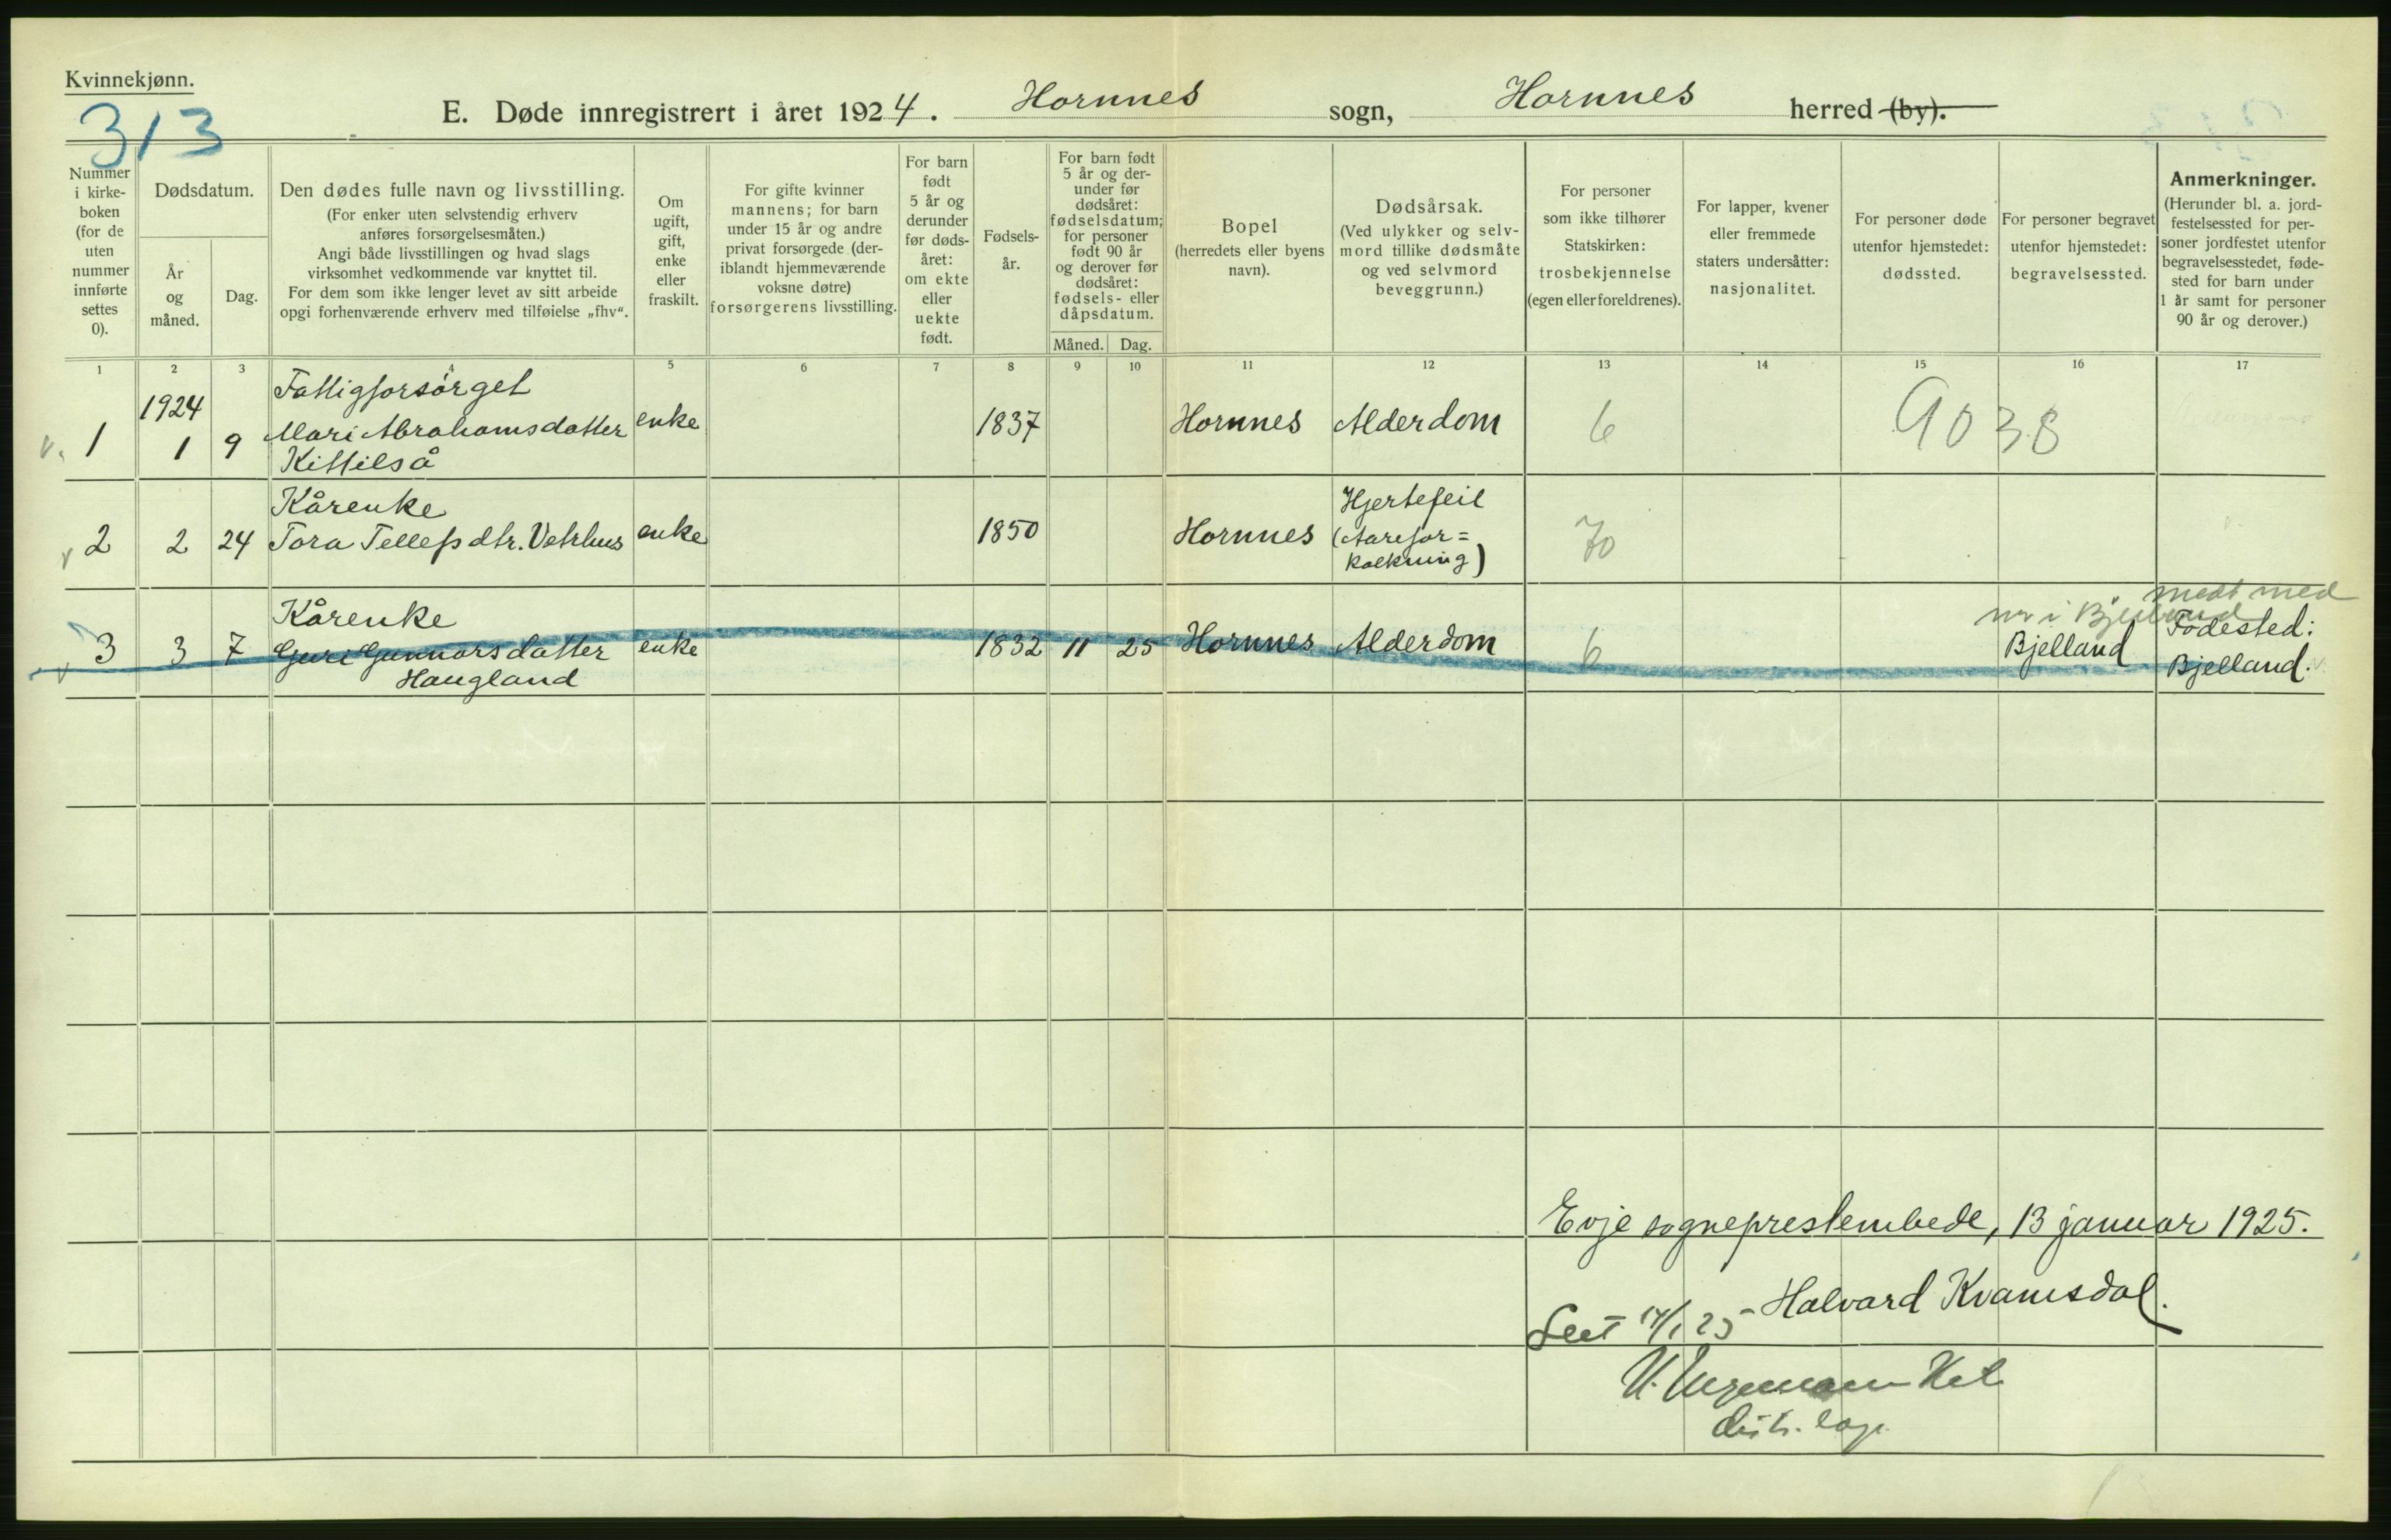 Kvinnekjønn.
313
E. Døde innregistrert i året 1924. Hornnes sogn, Hornnes herred (by).
Nummer
i kirke-
boken
(for de
uten
nummer
innførte
settes
0).
Dødsdatum.
År
og
måned.
Dag.
Den dødes fulle navn og livsstilling.
(For enker uten selvstendig erhverv
anføres forsørgelsesmåten.)
Angi både livsstillingen og hvad slags
virksomhet vedkommende var knyttet til.
For dem som ikke lenger levet av sitt arbeide
opgi forhenværende erhverv med tilføielse „fhv“.
Om
ugift,
gift,
enke
eller
fraskilt.
For gifte kvinner
mannens; for barn
under 15 år og andre
privat forsørgede (der-
iblandt hjemmeværende
voksne døtre)
forsørgerens livsstilling.
For barn
født
5 år og
derunder
før døds-
året:
om ekte
eller
uekte
født.
Fødsels-
år.
For barn født
5 år og der-
under før
dødsåret:
fødselsdatum;
for personer
født 90 år
og derover før
dødsåret:
fødsels- eller
dåpsdatum.
Måned. Dag.
Bopel
(herredets eller byens
navn).
Dødsårsak.
(Ved ulykker og selv-
mord tillike dødsmåte
og ved selvmord
beveggrunn.)
For personer
som ikke tilhører
Statskirken:
trosbekjennelse
(egen eller foreldrenes).
For lapper, kvener
eller fremmede
staters undersåtter:
nasjonalitet.
For personer døde
utenfor hjemstedet:
dødssted.
For personer begravet
utenfor hjemstedet:
begravelsessted.
Anmerkninger.
(Herunder bl. a. jord-
festelsessted for per-
soner jordfestet utenfor
begravelsesstedet, føde-
sted for barn under
1 år samt for personer
90 år og derover.)
1 2 3 4 5 6 7 8 9 10 11 12 13 14 15 16 17
1924 Fattigforsørget
v. 1 1 9 Mari Abrahamsdatter enke 1837 Hornnes Alderdom 6 9038
Kittilså
Kårenke Hjertefeil
v 2 2 24 Tora Tellefsdtr. Vetrhus enke 1850 Hornnes (Aarefor= 70
kalkning)
medt med
nr i Bjelland
Kårenke Fødested:
v 3 3 7 Guri Gunnarsdatter enke 1832 11 25 Hornnes Alderdom 6 Bjelland Bjelland.
Haugland
Evje sogneprestembede, 13 januar 1925.
Halvard Kvamsdal.
Sett 14/1 25
distr. læge